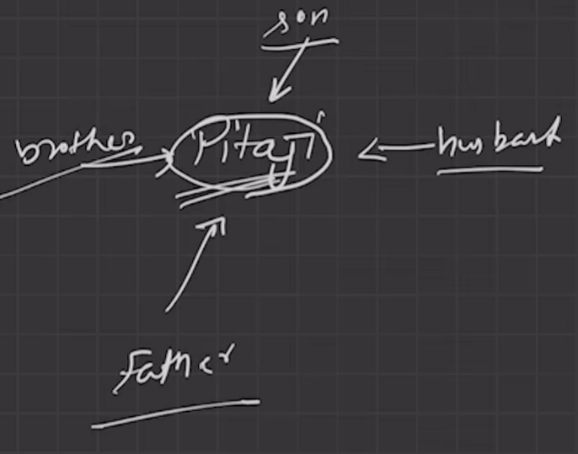 son
brother
Pitaji
husband
Father